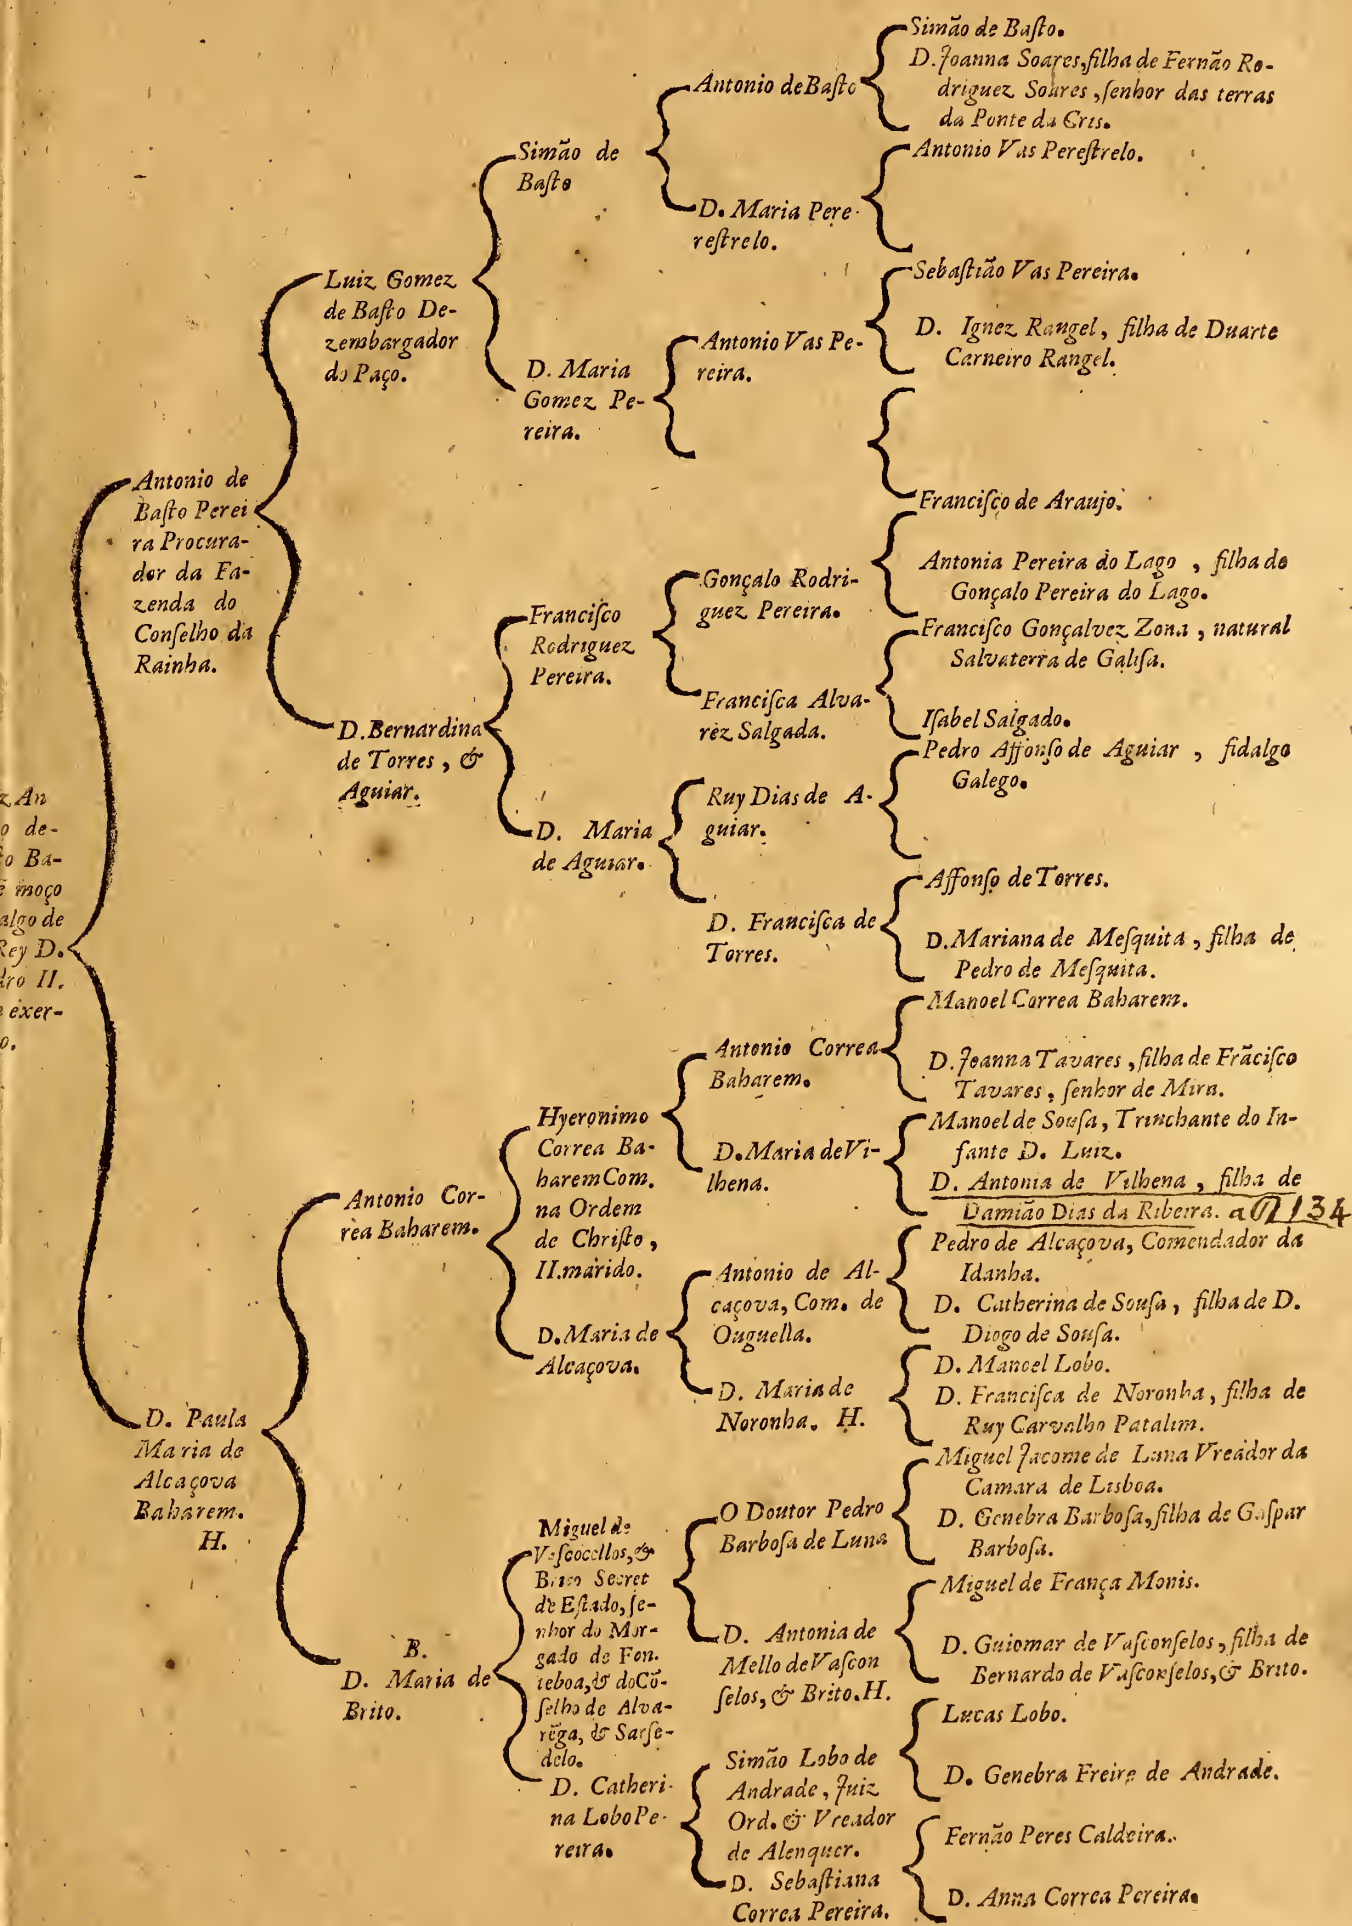 z An
o de-
to Ba-
ẽ moço
algo de
Rey D.
dro II.
exer-
o.
Antonio de
Baſto Perei
ra Procura-
dor da Fa-
zenda do
Conſelho da
Rainha.
D. Paula
Maria de
Alcaçova
Baharem.
H.
Luiz Gomez
de Baſto De-
zembargador
do Paço.
D. Bernardina
de Torres, &
Aguiar.
Antonio Cor-
rea Baharem.
B.
D. Maria de
Brito.
Simão de
Baſto
D. Maria
Gomez Pe-
reira.
Franciſco
Rodriguez
Pereira.
D. Maria
de Aguiar.
Hyeronimo
Correa Ba-
harem Com.
na Ordem
de Chriſto,
II. marido.
D. Maria de
Alcaçova.
Miguel de
Vaſcõcellos, &
Brito Secret
de Eſtado, ſe-
nhor do Mor-
gado de Fon.
teboa, & do Cõ-
ſelho de Alva-
rẽga, & Sarſe-
delo.
D. Catheri-
na Lobo Pe-
reira.
Antonio de Baſto
D. Maria Pere-
reſtrelo.
Antonio Vas Pe-
reira.
Gonçalo Rodri-
guez Pereira.
Franciſca Alva-
rez Salgada.
Ruy Dias de A-
guiar.
D. Franciſca de
Torres.
Antonio Correa
Baharem.
D. Maria de Vi-
lhena.
Antonio de Al-
caçova, Com. de
Ouguella.
D. Maria de
Noronha. H.
O Doutor Pedro
Barboſa de Luna
D. Antonia de
Mello de Vaſcon
ſelos, & Brito. H.
Simão Lobo de
Andrade, Juiz
Ord. & Vreador
de Alenquer.
D. Sebaſtiana
Correa Pereira.
Simão de Baſto.
D. Joanna Soares, filha de Fernão Ro-
driguez Soares, ſenhor das terras
da Ponte da Cris.
Antonio Vas Pereſtrelo.
Sebaſtião Vas Pereira.
D. Ignez Rangel, filha de Duarte
Carneiro Rangel.
Franciſco de Araujo.
Antonia Pereira do Lago, filha de
Gonçalo Pereira do Lago.
Franciſco Gonçalvez Zona, natural
Salvaterra de Galiſa.
Iſabel Salgado.
Pedro Affonſo de Aguiar, fidalgo
Galego.
Affonſo de Torres.
D. Mariana de Meſquita, filha de
Pedro de Meſquita.
Manoel Correa Baharem.
D. Joanna Tavares, filha de Frãciſco
Tavares, ſenhor de Mira.
Manoel de Souſa, Trinchante do In-
fante D. Luiz.
D. Antonia de Vilhena, filha de
Damião Dias da Ribeira. 134
Pedro de Alcaçova, Comendador da
Idanha.
D. Catherina de Souſa, filha de D.
Diogo de Souſa.
D. Manoel Lobo.
D. Franciſca de Noronha, filha de
Ruy Carvalho Patalim.
Miguel Jacome de Luna Vreador da
Camara de Lisboa.
D. Genebra Barboſa, filha de Gaſpar
Barboſa.
Miguel de França Monis.
D. Guiomar de Vaſconſelos, filha de
Bernardo de Vaſconſelos, & Brito.
Lucas Lobo.
D. Genebra Freire de Andrade.
Fernão Peres Caldeira.
D. Anna Correa Pereira.